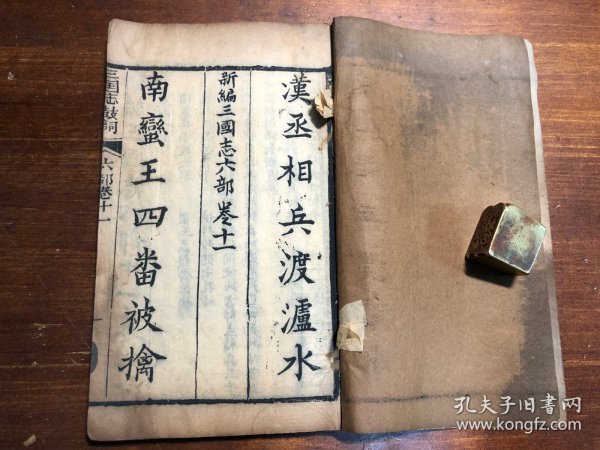 漢丞相兵渡瀘水
新編三國志六部卷十一
南蠻王四番被擒
三国志鼓詞
六部卷十一
孔夫子旧书网
www.kongfz.com